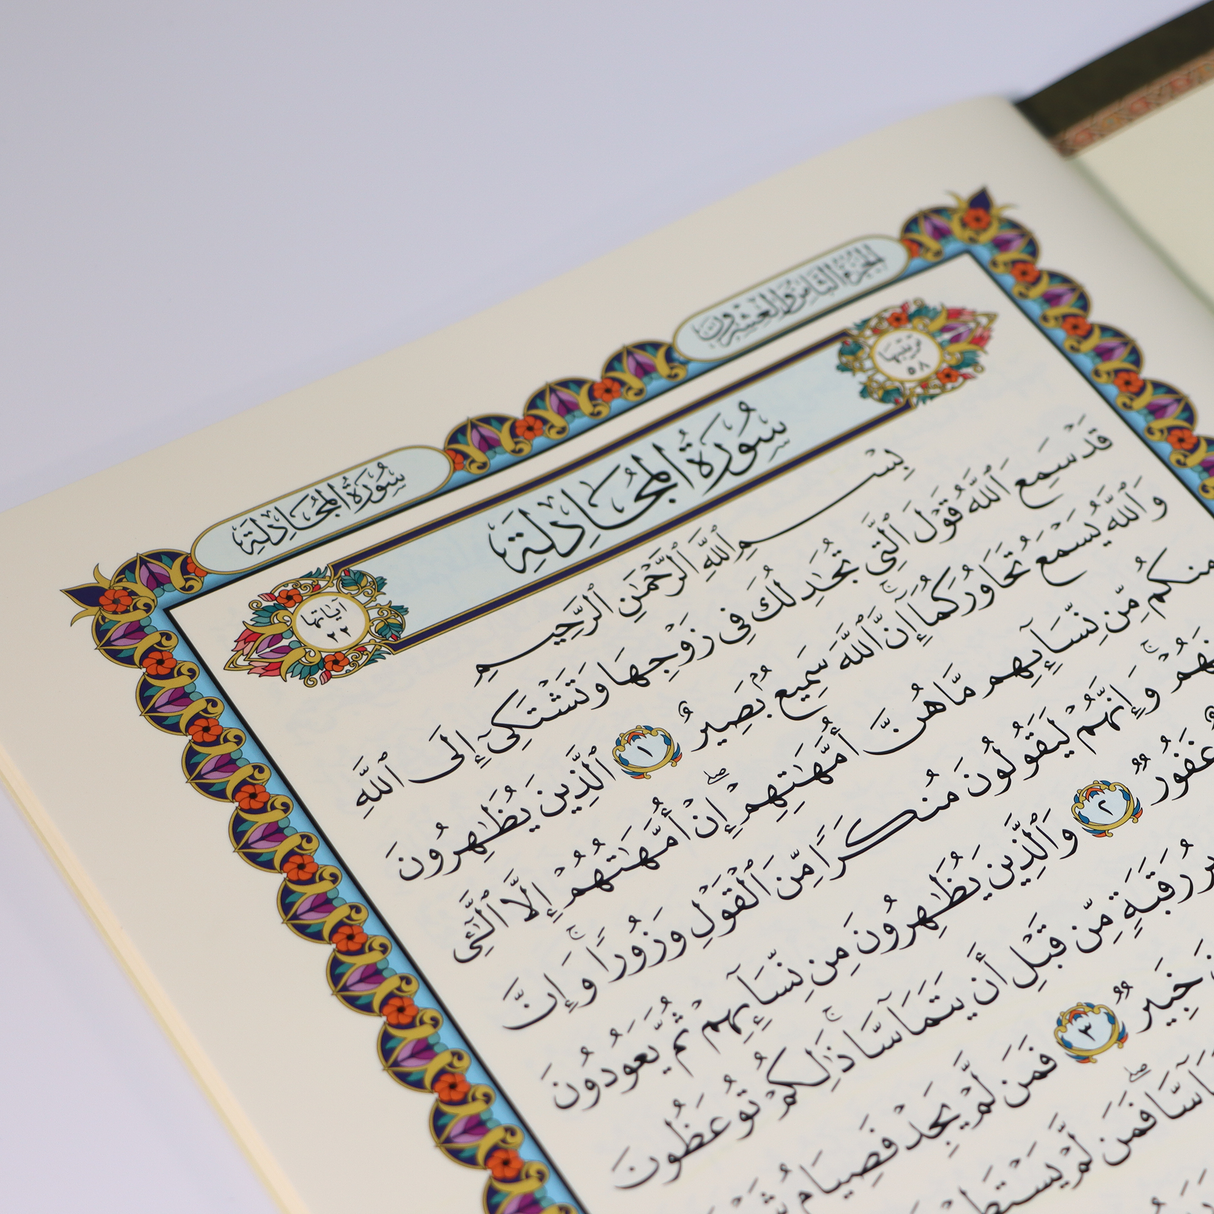 الجزء الثامن والعشرون
سُورَةُ المُجَادلة
ترتيبها ٥٨
سُورَةُ المُجَادلة
آياتها ٢٢
بِسْمِ ٱللَّهِ ٱلرَّحْمَٰنِ ٱلرَّحِيمِ
قَدْ سَمِعَ ٱللَّهُ قَوْلَ ٱلَّتِي تُجَٰدِلُكَ فِي زَوْجِهَا وَتَشْتَكِيٓ إِلَى ٱللَّهِ
وَٱللَّهُ يَسْمَعُ تَحَاوُرَكُمَآ إِنَّ ٱللَّهَ سَمِيعٌۢ بَصِيرٌ ١ ٱلَّذِينَ يُظَٰهِرُونَ
مِنكُم مِّن نِّسَآئِهِم مَّا هُنَّ أُمَّهَٰتِهِمْ إِنْ أُمَّهَٰتُهُمْ إِلَّا ٱلَّٰٓـِٔي
وَإِنَّهُمْ لَيَقُولُونَ مُنكَرًا مِّنَ ٱلْقَوْلِ وَزُورًا وَإِنَّ
غَفُورٌ ٢ وَٱلَّذِينَ يُظَٰهِرُونَ مِن نِّسَآئِهِمْ ثُمَّ يَعُودُونَ
رَقَبَةٍ مِّن قَبْلِ أَن يَتَمَآسَّا ذَٰلِكُمْ تُوعَظُونَ
خَبِيرٌ ٣ فَمَن لَّمْ يَجِدْ فَصِيَامُ
فَمَن لَّمْ يَسْتَطِعْ